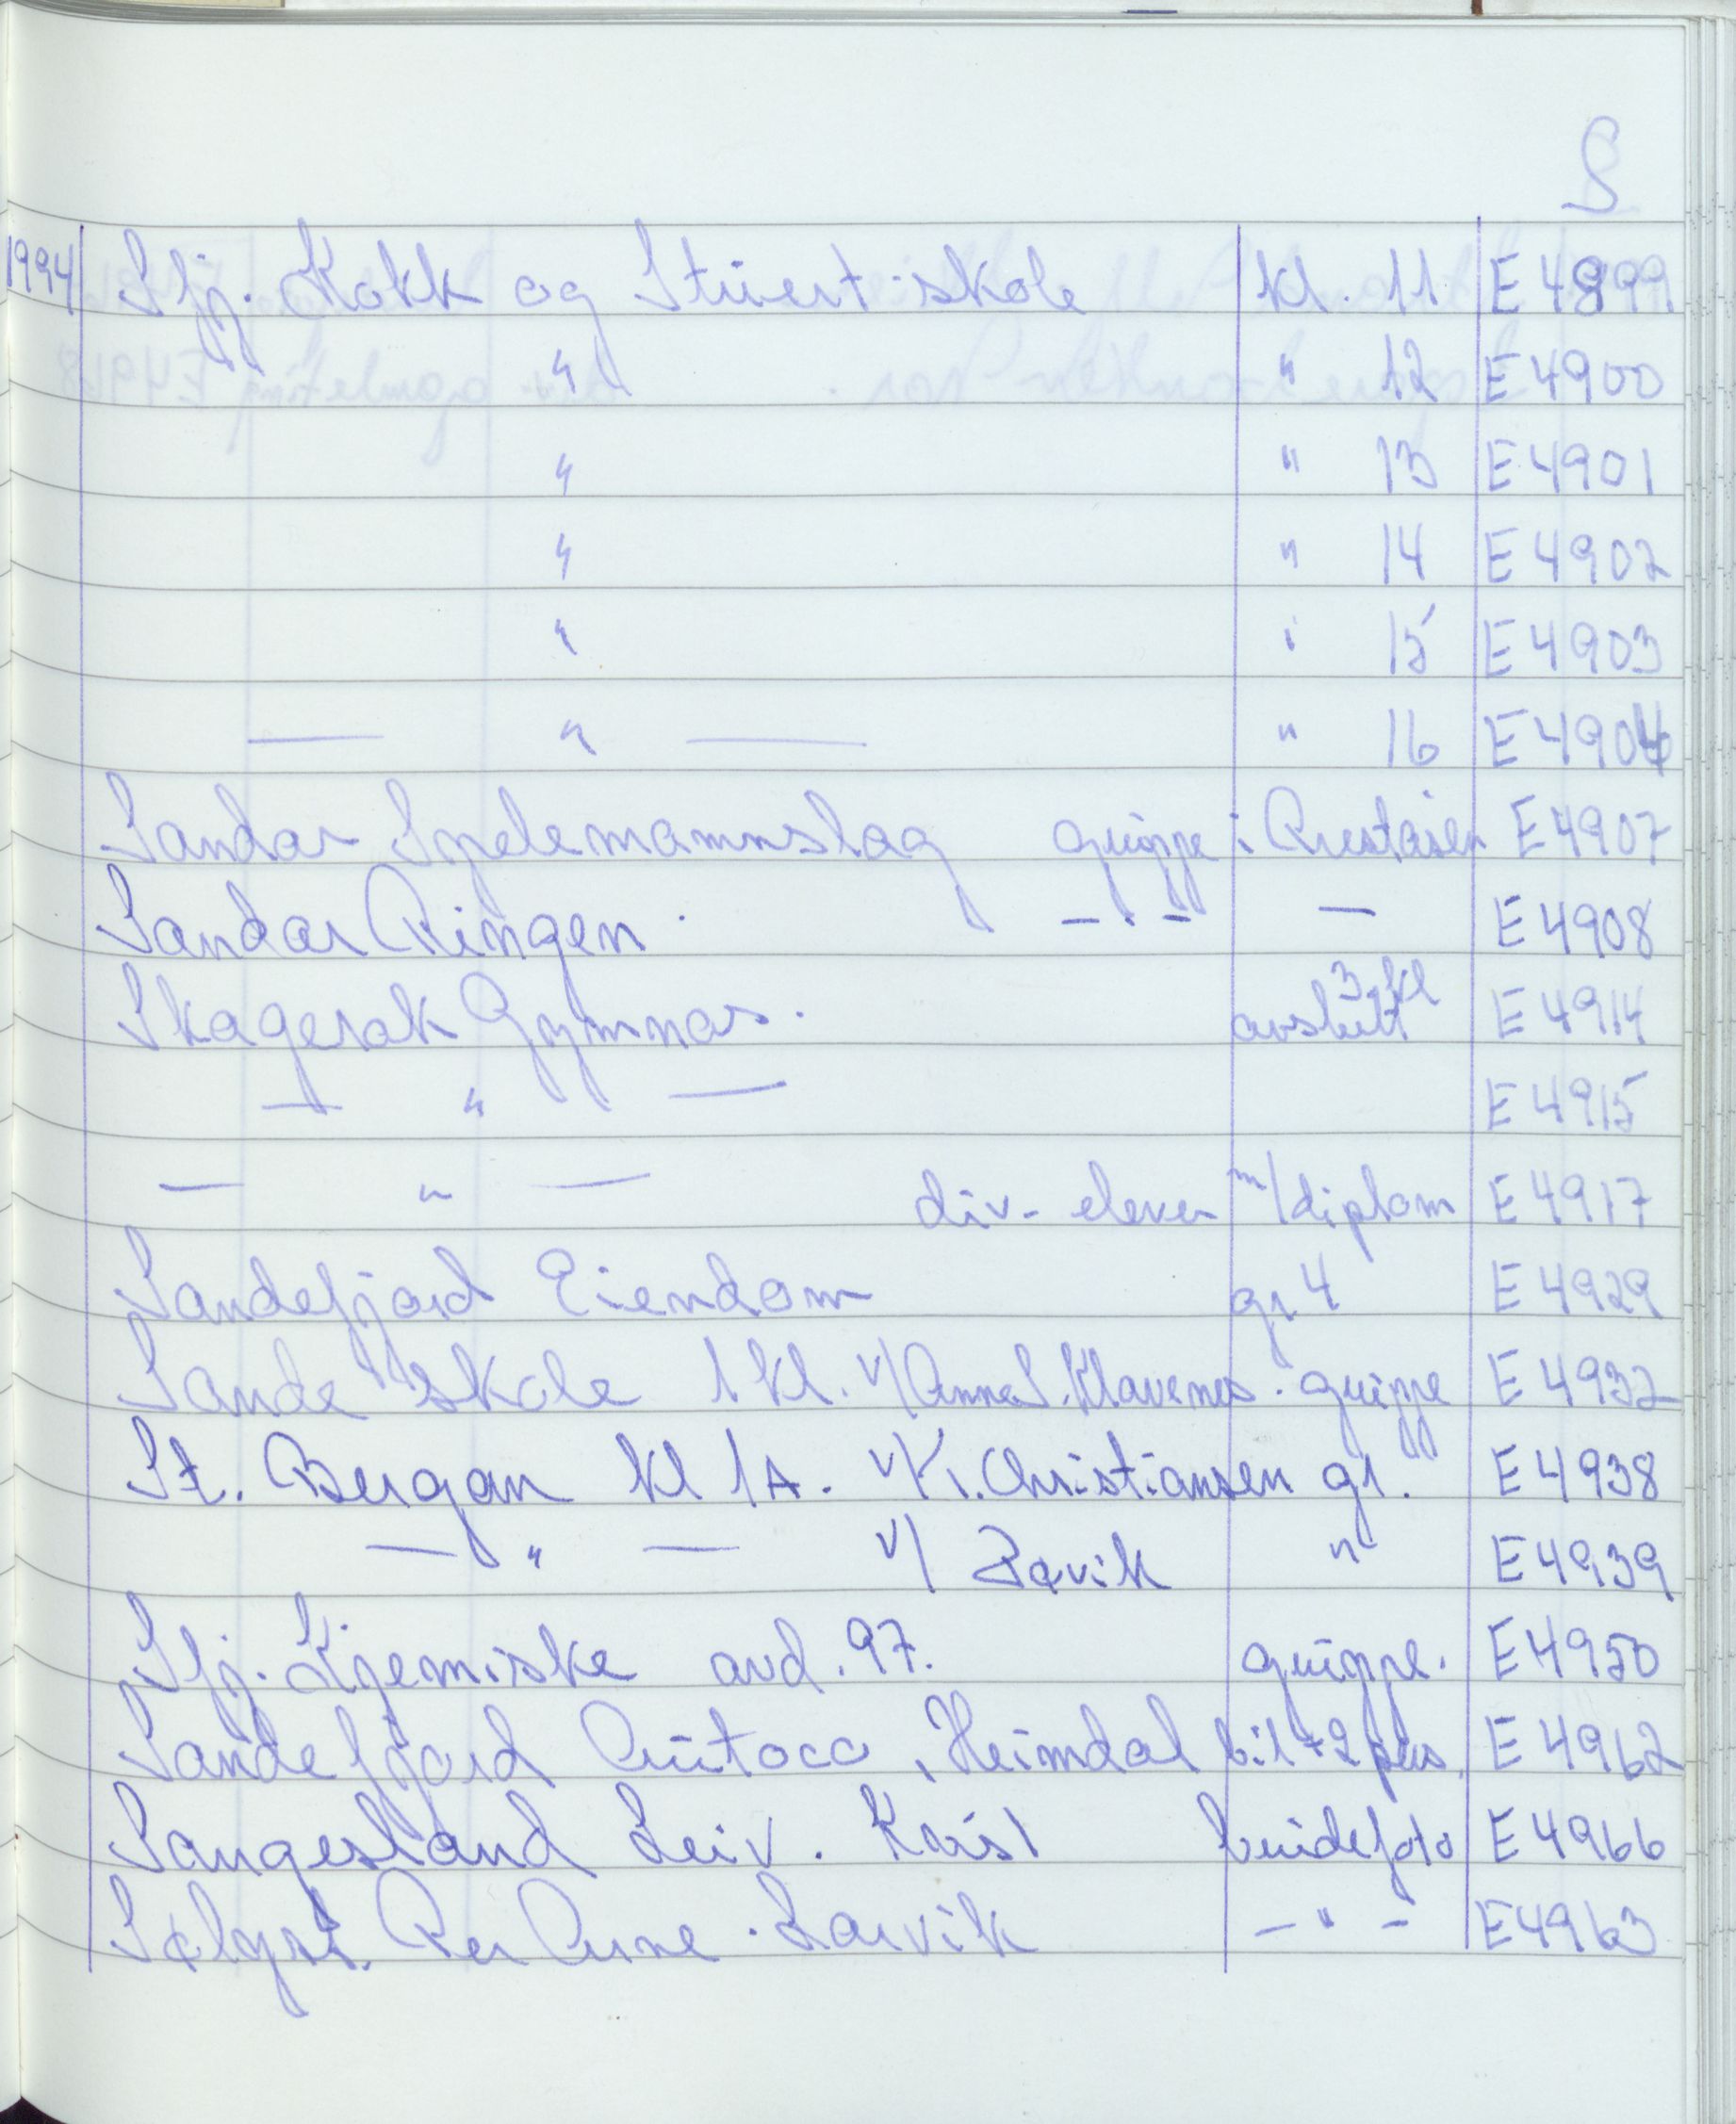 S
1994 Sfj. Kokk og Stuert-skole kl. 11 E 4899
" " 12 E 4900
" " 13 E 4901
" " 14 E 4902
" " 15 E 4903
— " — " 16 E 4904
Sandar Spelemannslag gruppe i Preståsen E 4907
Sandar Ringen. — . — — E 4908
Skagerak Gymnas. 3 kl avslutt E 4914
— " — E 4915
— " — div. elever m/diplom E 4917
Sandefjord Eiendom gr 4 E 4929
Sande skole 1 kl. v/Anne S. Klavenes. gruppe E 4932
St. Bergan kl 1A. v/K. Christiansen gr. E 4938
— " — v/ Røvik " E 4939
Sfj. Kjemiske avd. 97. gruppe. E 4950
Sandefjord Autocc, Heimdal bil + 2 pers. E 4962
Saugestand Leiv. Krist brudefoto E 4966
Per Arne. Larvik — " — E 4963